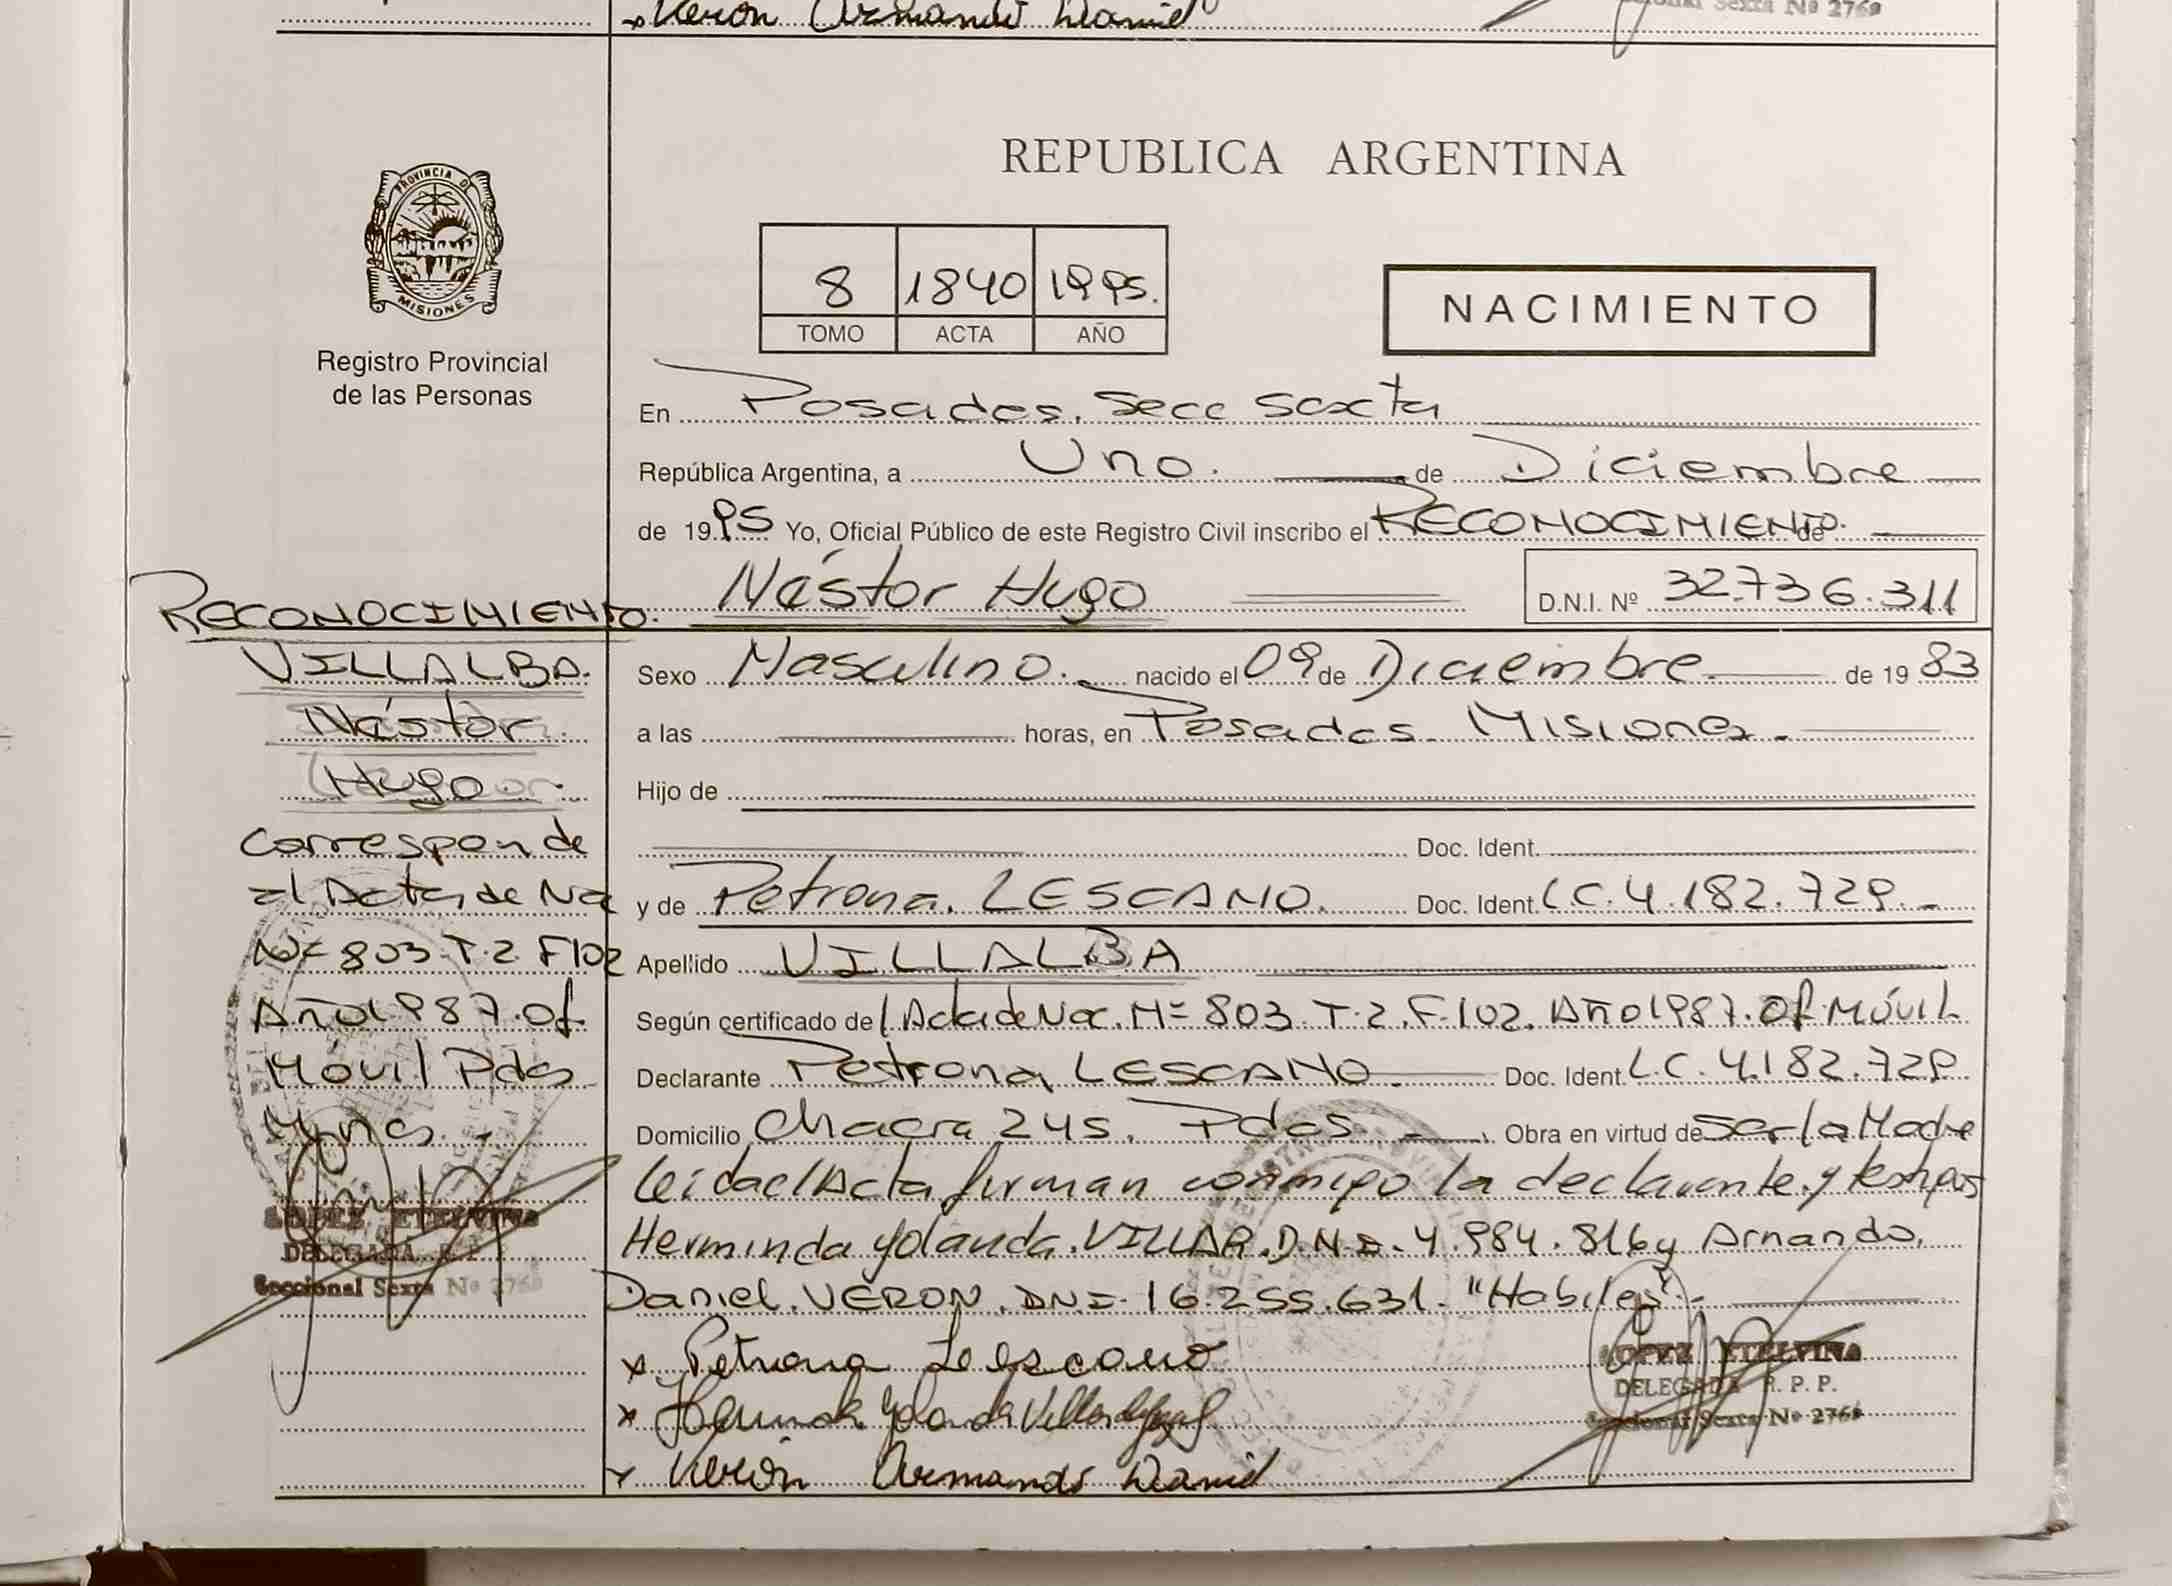 Verón Armando Daniel
Seccional Sexta Nº 2768
PROVINCIA DE
MISIONES
Registro Provincial
de las Personas
REPUBLICA ARGENTINA
8 1840 1995.
TOMO ACTA AÑO
NACIMIENTO
En Posadas. Secc Sexta
República Argentina, a Uno. de Diciembre
de 1995 Yo, Oficial Público de este Registro Civil inscribo el RECONOCIMIENTO. de
Néstor Hugo D.N.I. Nº 32.736.311
Sexo Masculino. nacido el 09 de Diciembre de 1983
a las horas, en Posadas. Misiones.
Hijo de
Doc. Ident.
y de Petrona. LESCANO. Doc. Ident. LC.4.182.729.
Apellido VILLALBA
Según certificado del Acta de Nac. Nº 803. T.2. F.102. Año 1987. Of. MÓVIL
Declarante Petrona LESCANO. Doc. Ident. L.C. 4.182.729
Domicilio Chacra 245. Pdas. Obra en virtud de ser la Madre
leída el Acta firman conmigo la declarante y testigos
Herminda Yolanda. VILLAR. D.N.I. 4.984.816 y Armando.
Daniel. VERON. DNI. 16.255.631. "Habiles".
x Petrona Lescano
x Herminda Yolanda Villar de
x Verón Armando Daniel
LOPEZ ETELVINA
DELEGADA R. P. P.
Seccional Sexta Nº 2768
RECONOCIMIENTO.
VILLALBA.
Néstor.
Hugo.
Corresponde
al Acta de Na
Nº 803. T.2. F102
Año 1987. Of.
Móvil Pdas
Mnes.
LOPEZ ETELVINA
DELEGADA R. P.
Seccional Sexta Nº 2768